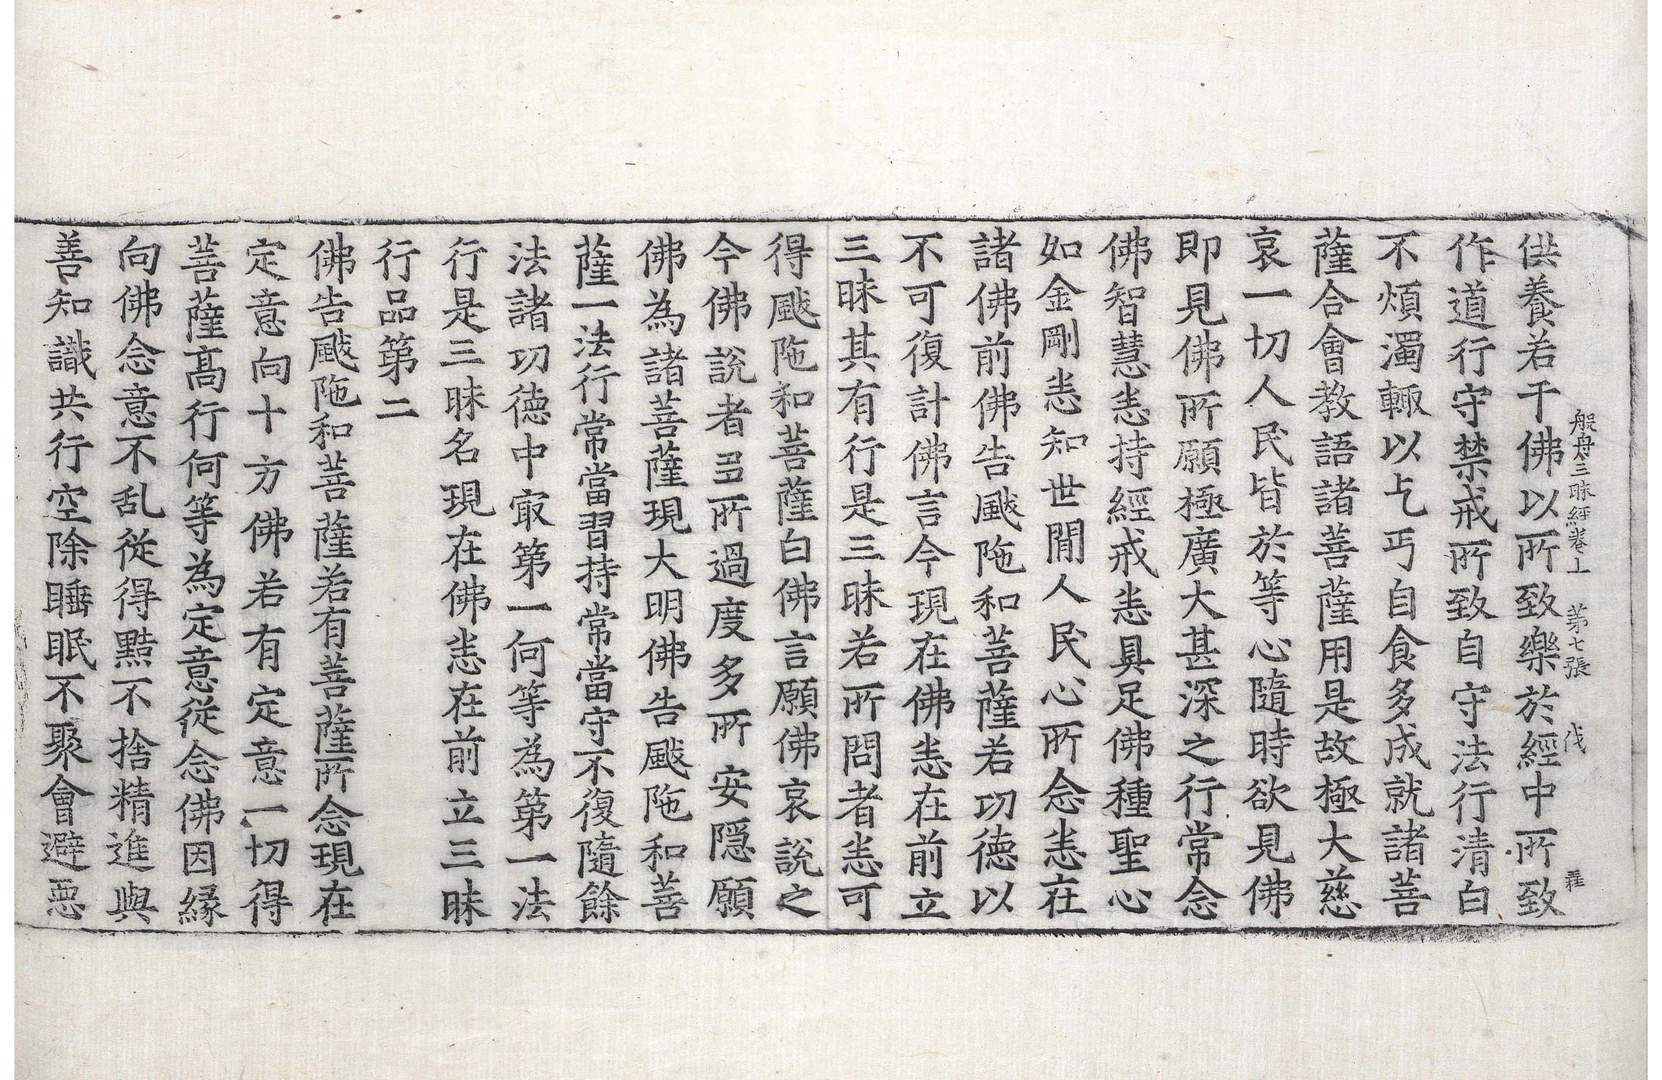 般舟三昧經卷上 第七張 伐
供養若干佛以所致樂於經中所致
作道行守禁戒所致自守法行清白
不煩濁輙以乞丐自食多成就諸菩
薩合會教語諸菩薩用是故極大慈
哀一切人民皆於等心隨時欲見佛
即見佛所願極廣大甚深之行常念
佛智慧悉持經戒悉具足佛種聖心
如金剛悉知世閒人民心所念悉在
諸佛前佛告颰陁和菩薩若功德以
不可復計佛言今現在佛悉在前立
三昧其有行是三昧若所問者悉可
得颰陁和菩薩白佛言願佛哀說之
今佛說者多所過度多所安隠願
佛為諸菩薩現大明佛告颰陁和菩
薩一法行常當習持常當守不復隨餘
法諸功德中冣第一何等為第一法
行是三昧名現在佛悉在前立三昧
行品第二
佛告颰陁和菩薩若有菩薩所念現在
定意向十方佛若有定意一切得
菩薩髙行何等為定意從念佛因縁
向佛念意不乱從得黠不捨精進與
善知識共行空除睡眠不聚會避惡